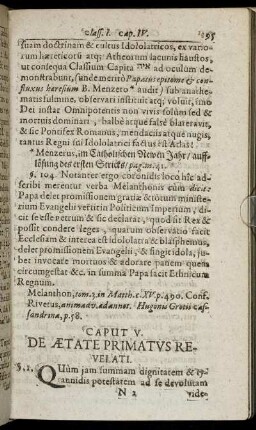 Class. I. Cap. IV. 195
suam doctrinam & cultus Idololatricos, ex vario-
rum hæreticorū atq; Atheorum lacunis haustos,
ut consequa Classium Capita ad oculum de-
monstrabunt, unde meritò Papatus epitome & con-
fluxus hæresium B. Menzero * audit / sub anathe-
matis fulmine, observari instituit atq; voluit, imo
Dei instar Omnipotentem non vivis solùm sed &
mortuis dominari, balbè atque falsè blateravit,
& sic Pontifex Romanus, mendaciis atque nugis,
tantus Regni sui Idololatrici factus est Achas!
* Menzerus, im Catholischen Newen Jahr / auff-
lösung der ersten Stricke / pag. m. 41.
§. 104. Notanter ergo coronidis loco hîc ad-
scribi merentur verba Melanthonis cùm dicat:
Papa delet promissionem gratiæ & totum ministe-
rium Evangelii vertit in Politicum Imperium, di-
cit se esse petrum & sic declarat, quòd sit Rex &
possit condere leges, quarum observatio facit
Ecclesiam & interea est idololatra & blasphemus,
delet promissionem Evangelii, & fingit idola, ju-
bet invocare mortuos & adorare panem quem
circumgestat &c. in summa Papa facit Ethnicum
Regnum.
Melanthon, tom. 3. in Matth. c. XV. p. 490. Conf.
Rivetus, animadv. ad annot. Hugonis Grotii Cas-
sandrina, p. 58.
CAPUT V.
DE ÆTATE PRIMATUS RE-
VELATI.
§. 1. QUùm jam summam dignitatem & ty-
rannidis potestatem ad se devolutam
N 2 vide-